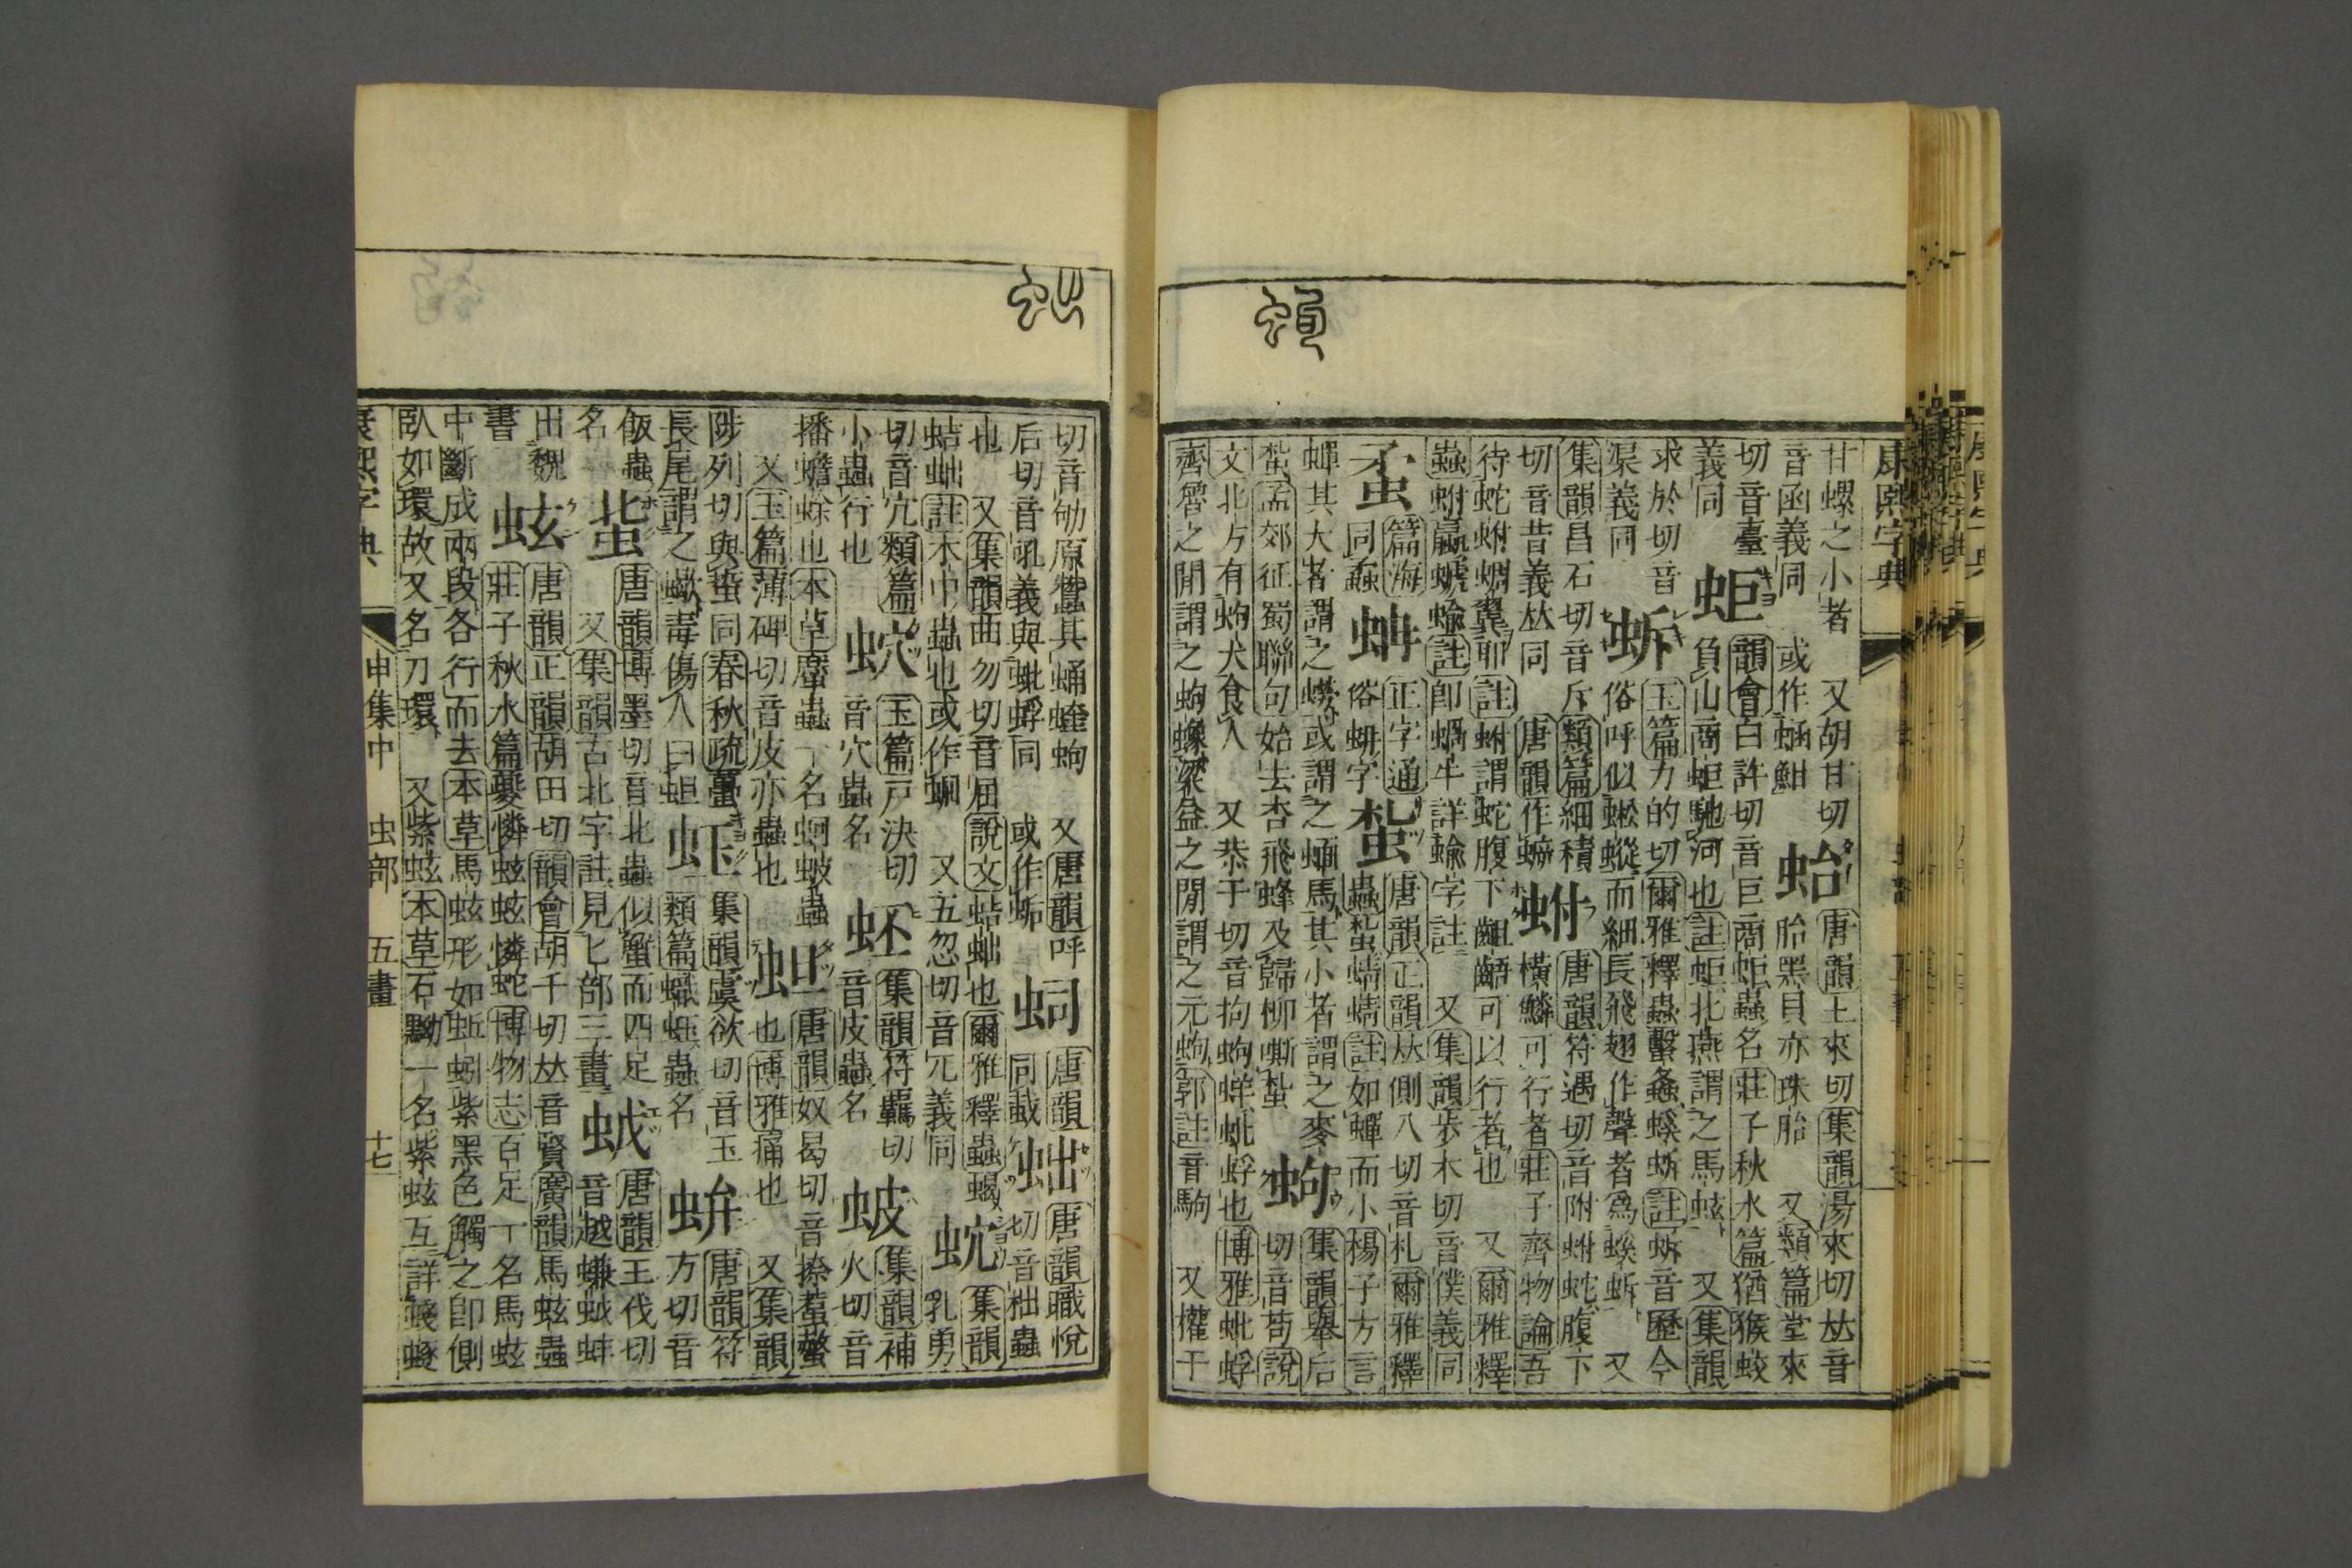 康熙字典
甘螺之小者　又胡甘切
音函義同　或作蜬魽
𧉟
唐韻土來切集韻湯來切𠀤音
胎黑貝亦珠胎　又類篇堂來
切音臺
義同
蚷
韻會白許切音巨商蚷蟲名莊子秋水篇猶猴蛟
負山商蚷馳河也註蚷北燕謂之馬蚿　又集韻
求於切音
渠義同
蚸
玉篇力的切爾雅釋蟲蟿螽螇蚸註蚸音歷今
俗呼似蜙䗥而細長飛翅作聲者爲螇蚸　又
集韻昌石切音斥類篇細積
切音昔義𠀤同　唐韻作
蚹
唐韻符遇切音附蚹蛇腹下
橫鱗可行者莊子齊物論吾
待蛇蚹蜩翼耶註蚹謂蛇腹下齟齬可以行者也　又爾雅釋
蟲蚹蠃螔蝓註卽蝸牛詳蝓字註　又集韻步木切音僕義同
篇海
同
正字通
俗蚺字
蚻
唐韻正韻𠀤側八切音札爾雅釋
蟲蚻蜻蜻註如蟬而小楊子方言
蟬其大者謂之蟧或謂之蝒馬其小者謂之麥
蚻孟郊征蜀聯句始去杏飛蜂及歸柳嘶蚻
蚼
集韻舉后
切音苟說
文北方有蚼犬食人　又恭于切音拘蚼蛘蚍蜉也博雅蚍蜉
齊魯之閒謂之蚼蟓梁益之閒謂之元蚼郭註音駒　又權于
切音劬原蠶其蛹蝰蚼　又唐韻呼
后切音吼義與蚍蜉同　或作
唐韻
同蛓
䖦
唐韻職悅
切音梲蟲
也　又集韻曲勿切音屈說文蛣䖦也爾雅釋蟲蝎
蛣䖦註木中蟲也或作蜛　又五忽切音兀義同
集韻
乳勇
切音宂類篇
小蟲行也
玉篇戸決切
音穴蟲名
集韻符羈切
音皮蟲名
蚾
集韻補
火切音
播蟾蜍也本草䗪蟲一名蚵蚾蟲
又玉篇薄碑切音皮亦蟲也
唐韻奴曷切音捺螫
也博雅痛也　又集韻
陟列切與蜇同春秋疏蠆
長尾謂之蠍毒傷人曰
集韻虞欲切音玉
類篇蟲名
唐韻符
方切音
飯蟲
名
唐韻博墨切音北蟲似蟹而四足
又集韻古北字註見匕部三畫
蚎
唐韻王伐切
音越蚎蚌
出魏
書
蚿
唐韻正韻胡田切韻會胡千切𠀤音賢廣韻馬蚿蟲
莊子秋水篇夔憐蚿蚿憐蛇博物志百足一名馬蚿
中斷成兩段各行而去本草馬蚿形如蚯蚓紫黑色觸之卽側
臥如環故又名刀環　又紫蚿本草石一名紫蚿互詳
康熙字典　申集中　虫部　五畫　十七